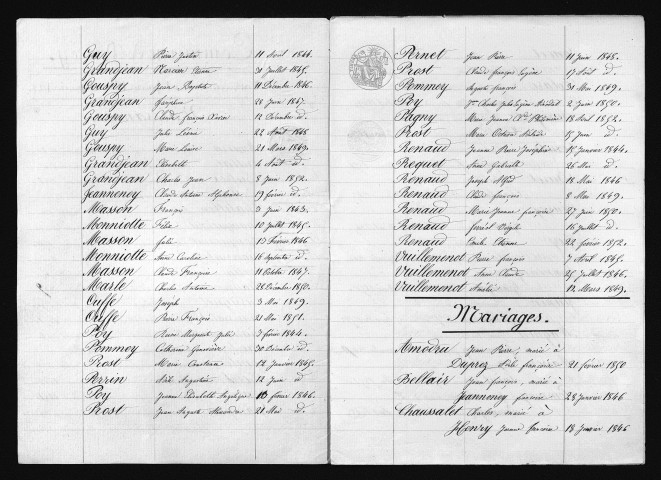 Guy Pierre Justin 11 Août 1844.
Grandjean Narcisse Etienne 31 Juillet 1845.
Gouspy Jean Baptiste 11 Décembre 1846.
Grandjean Joséphine 28 Juin 1847.
Gouspy Claude François Xavier 12 Décembre id.
Guy Jules Léonie 22 Août 1848
Gouspy Marie Louise 21 Mars 1849.
Grandjean Elisabeth 4 Août id.
Grandjean Charles Jean 8 Juin 1852.
Jeanneney Claude Antoine Alphonse 19 février id.
Masson François 3 Juin 1843.
Monniotte Félix 10 Juillet 1845.
Masson Julie 13 Février 1846
Monniotte Anne Caroline 16 Septembre id.
Masson Claude Françoise 11 Octobre 1847.
Marle Charles Antoine 28 Décembre 1850.
Cuffe Joseph 3 Mai 1849.
Cuffe Pierre François 21 Mai 1851.
Poy Jeanne Marguerite Julie 3 février 1844.
Pommey Catherine Geneviève 30 Décembre id.
Prost Marie Constance 12 Janvier 1845.
Perrin Augustine 12 Juin id.
Poy Jeanne Elisabeth Angélique 10 février 1846.
Prost Jean Auguste Alexandre 21 Mai id.
Pernet Jean Pierre 11 Juin 1848.
Prost Claude François Eugène 17 Août id.
Pommey Auguste François 31 Mai 1849.
Poy Charles Jules 2 Juin 1850.
Pagny Marie Jeanne 18 Août 1852.
Prost Marie 15 Juin id.
Renaud Jeanne Pierre Joséphine 15 Janvier 1844.
Requet Anne Gabrielle 26 Mai id.
Renaud Joseph Alfred 18 Mai 1846
Renaud Claude François 8 Mai 1849.
Renaud Marie Jeanne Françoise 27 Juin 1850.
Renaud 16 Juillet id.
Renaud Emile Etienne 22 février 1852.
Vuillemenot Pierre François 7 Avril 1845.
Vuillemenot Anne Claude 25 Juillet 1846.
Vuillemenot Amélie 12 Mars 1849.
Mariages.
Amédru Jean Pierre, marié à
Duprez Françoise 21 février 1850
Bellair Jean François, marié à
Jeanneney Françoise 28 Janvier 1846
Chaussalet Charles, marié à
Henry Jeanne Françoise 18 Janvier 1846